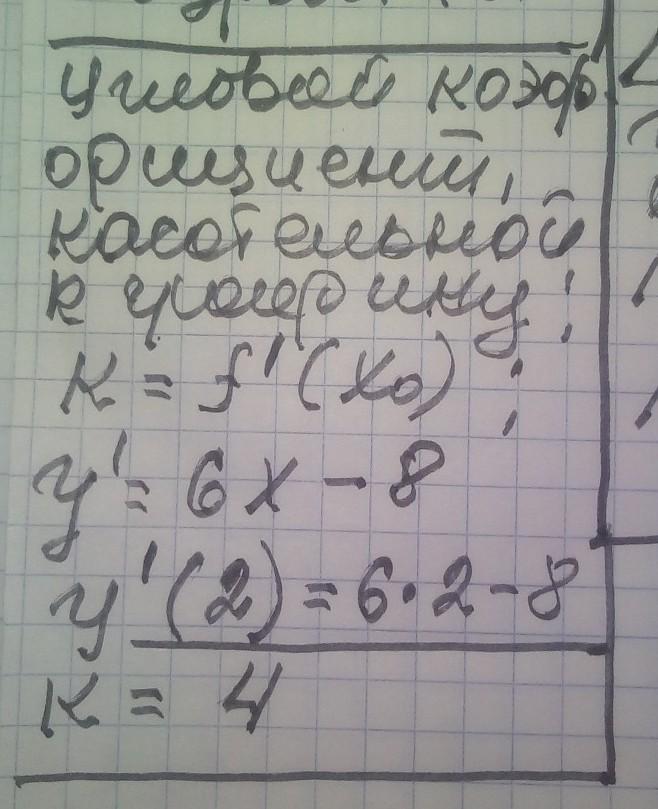 угловой коэф
фициент,
касательной
к графику;
K = f'(x₀);
y' = 6x - 8
y'(2) = 6·2-8
K = 4